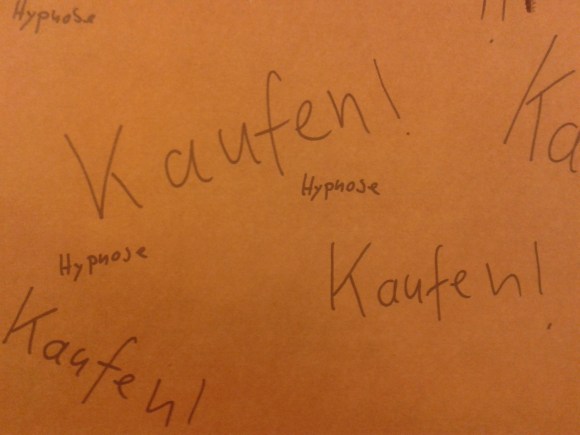 Hypnose
Kaufen!
Ka
Hypnose
Hypnose
Kaufen!
Kaufen!